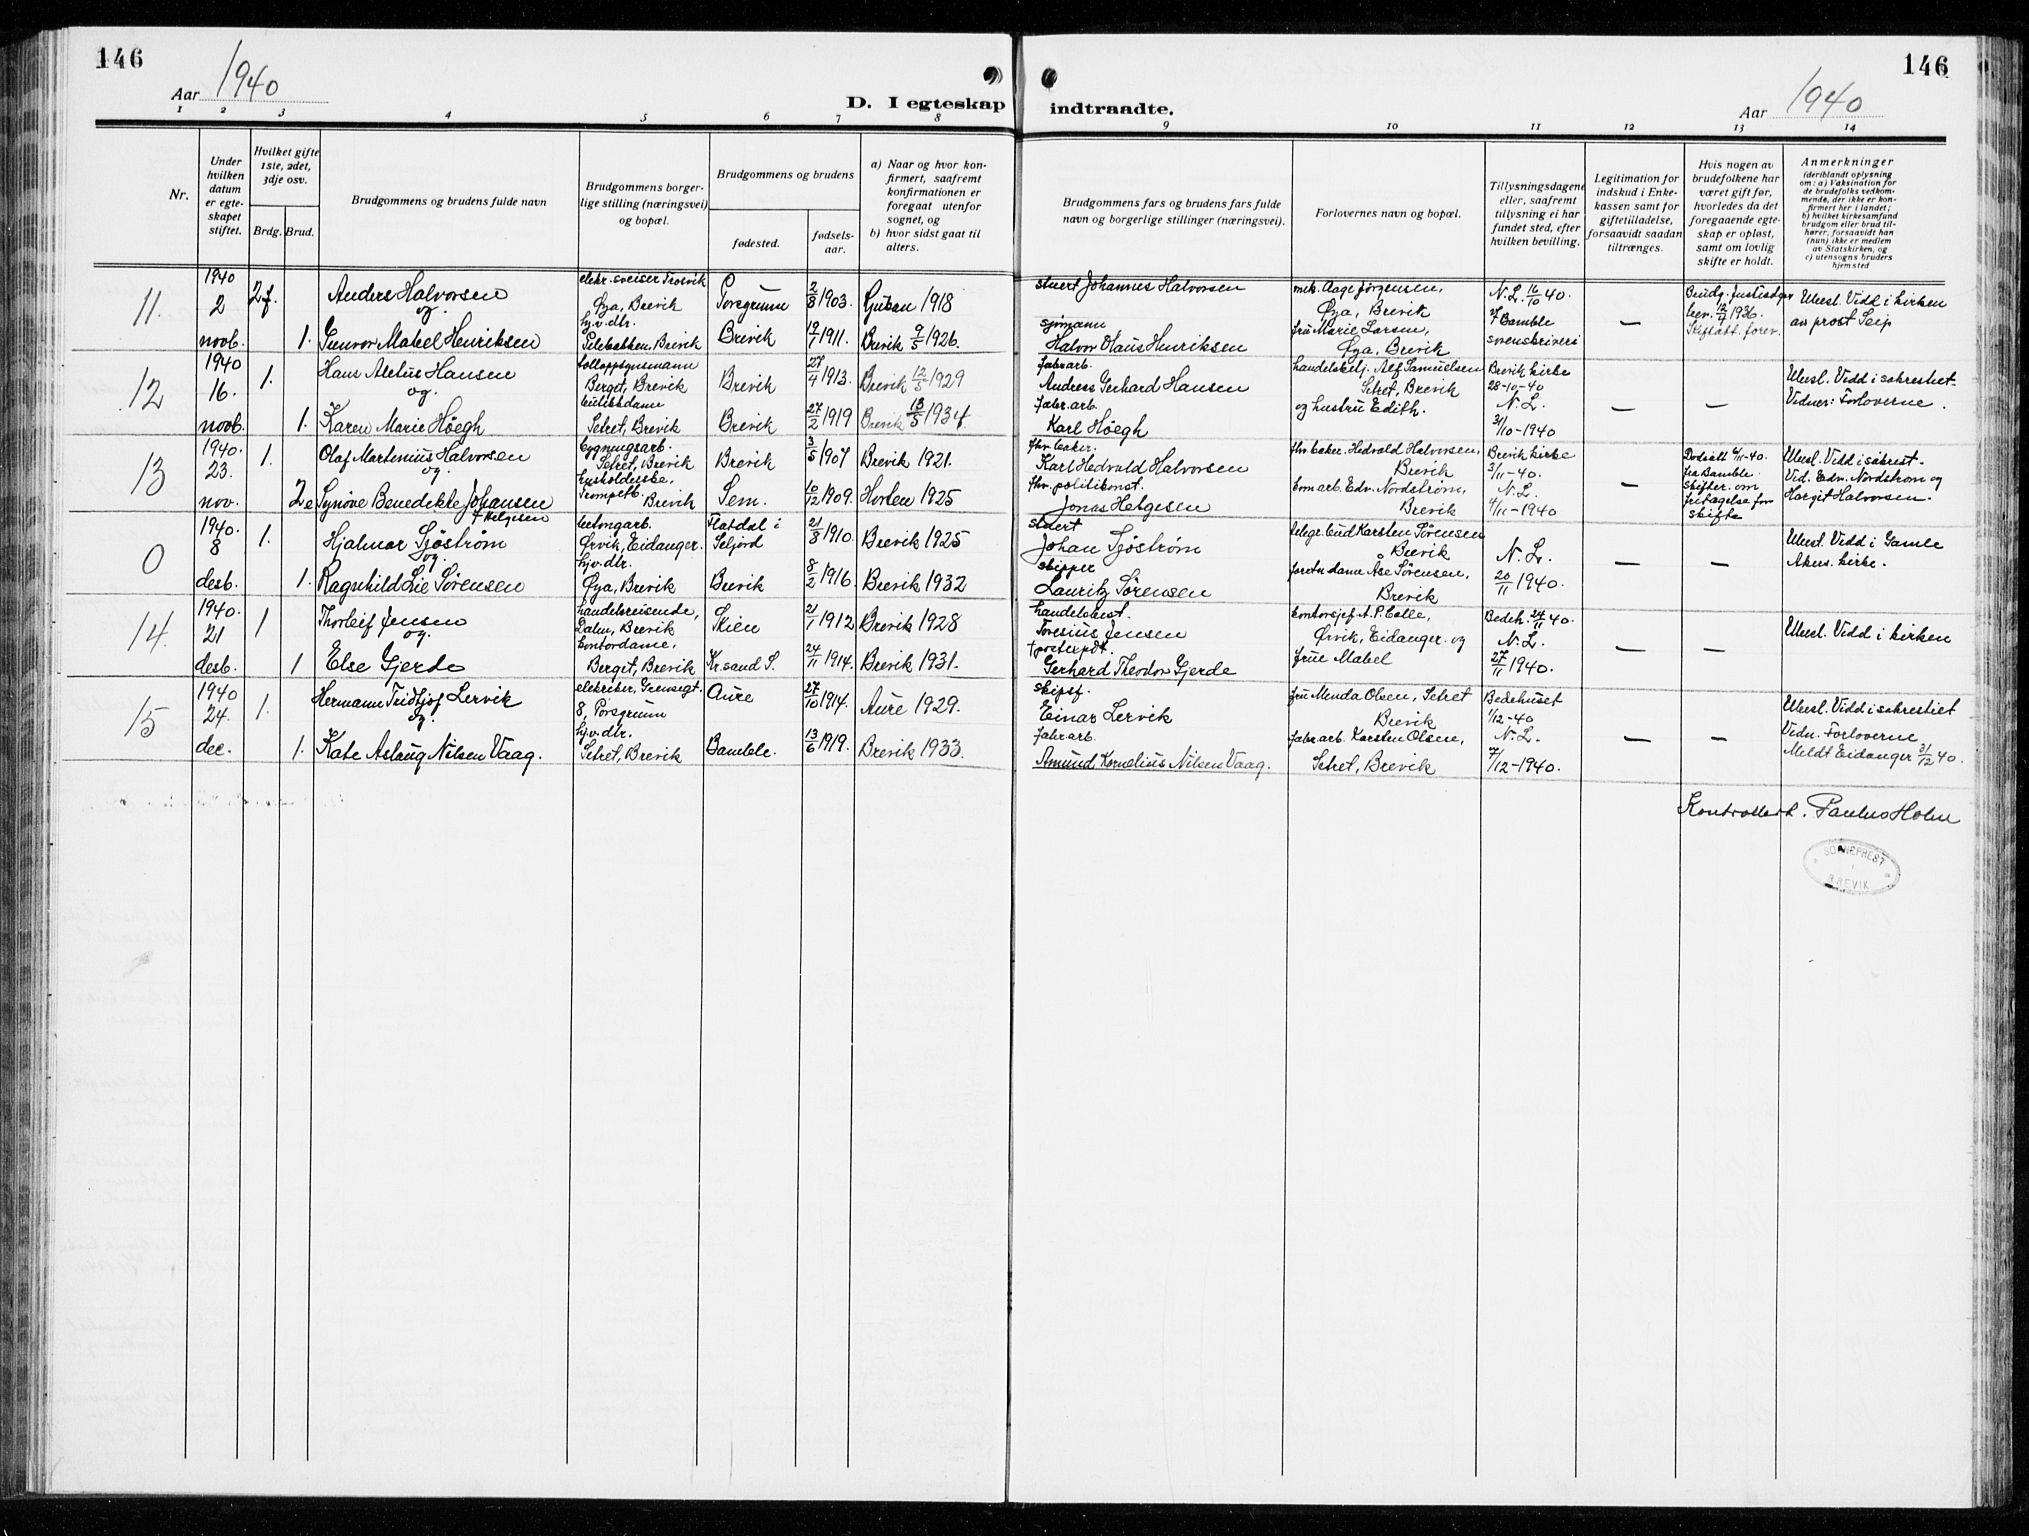 146
Aar 1940
D. I egteskap
1 2 3 4 5 6 7 8
Nr.
Under hvilken datum er egteskapet stiftet.
Hvilket gifte 1ste, 2det, 3dje osv.
Brdg. Brud.
Brudgommens og brudens fulde navn
Brudgommens borgerlige stilling (næringsvei) og bopæl.
Brudgommens og brudens
fødested.
fødselsaar.
a) Naar og hvor konfirmert, saafremt konfirmationen er foregaat utenfor sognet, og
b) hvor sidst gaat til alters.
11. 1940 2 novb.
2 f. Anders Halvorsen
og.
1. Gunvor Mabel Henriksen
elekr. sveiser Trosvik
Øya, Brevik
hj.v.dtr.
Brevik
Porsgrunn 2/8 1903. Rjukan 1918
Brevik 1911. Brevik 9/5 1926.
12 1940 16. novb.
1. Hans Aletus Hansen
og.
1. Karen Marie Høegh
tolloppsynsmann
Berget, Brevik
butikkdame
Setret, Brevik
Brevik 27/4 1913. Brevik 12/5 1929
Brevik 27/2 1919 Brevik 13/5 1934.
13 1940. 23. nov.
1. Olaf Martenius Halvorsen
og
2 e Synøve Benedikte Johansen
f Helgesen
bygningsarb.
Setret, Brevik
husholderske,
Brevik
Brevik 3/5 1907 Brevik 1921.
Sem. 10/12 1909. Horten 1925
0 1940. 8 desb.
1. Hjalmar Sjøstrøm
og.
1. Ragnhild Lie Sørensen
betongarb.
Ørvik, Eidanger.
hj.v.dtr.
Øya, Brevik
Flatdal i
Seljord 21/8 1910. Brevik 1925
Brevik 8/2 1916. Brevik 1932
14 1940. 21 desb.
1 Thorleif Jensen
og.
1 Else Gjerde
handelsreisende,
Dalen, Brevik
kontordame,
Berget, Brevik
Skien 21/1 1912 Brevik 1928
Kr.sand S. 24/11 1914. Brevik 1931.
15 1940 24. dec.
1. Hermann Fridtjof Lervik
og.
1. Kate Aslaug Nilsen Vaag.
8, Porsgrunn
hj.v.dtr.
Setret, Brevik
Aure 27/10 1914. Aure 1929.
Bamble. 13/6 1919. Brevik 1933.
146
Aar 1940
indtraadte.
9 10 11 12 13 14
Brudgommens fars og brudens fars fulde navn og borgerlige stillinger (næringsvei).
Forlovernes navn og bopæl.
Tillysningsdagene eller, saafremt tillysning ei har fundet sted, efter hvilken bevilling.
Legitimation for indskud i Enkekassen samt for giftetilladelse, forsaavidt saadan tiltrænges.
Hvis nogen av brudefolkene har været gift før, hvorledes da det foregaaende egteskap er opløst, samt om lovlig skifte er holdt.
Anmerkninger (deriblandt oplysning om: a) Vaksination for de brudefolks vedkommende, der ikke er konfirmert her i landet; b) hvilket kirkesamfund brudgom eller brud tilhører, forsaavidt han (hun) ikke er medlem av Statskirken, og c) utensogns bruders hjemsted
stuert Johannes Halvorsen
sjømann
Halvor Hans Henriksen
mek. Aage Jørgensen,
Øya, Brevik
fru Marie Larsen,
Øya, Brevik
N.L. 16/10 40.
Bamble
sorenskriveri
—
Brudg. Justisdep.
bev. 12/12 1936.
Skifteatt. forev.
Utensl. Vidd i kirken
av prost Seip
fabr.arb.
Andreas Gerhard Hansen
fabr.arb.
Karl Høegh
handelsbetj. Alf Samuelsen
Setret, Brevik
og hustru Edith.
Brevik kirke
28-10-40
N.L.
31/10-1940
— —
Utensl. Vidd i sakrestiet.
Vidner: Forloverne.
fhv. baker.
Karl Hedvald Halvorsen
fhv. politikonst.
Jonas Helgesen
fhv. baker. Hedvald Halvorsen,
Brevik
komm.arb. Edv. Nordstrøm,
Brevik
Brevik kirke
3/11-40.
N.L.
4/11-1940
—
Dødsatt 6/11-40.
fra Bamble
skifter. om
fritagelse for
skifte
Utensl. Vidd i sakrest.
Vid. Edv. Nordstrøm og
Margit Halvorsen.
stuert
Johan Sjøstrøm
skipper
Lauritz Sørensen
telegr.bud Karsten Sørensen
Brevik
Åse Sørensen,
Brevik
N.L.
20/11 1940.
— —
Utensl. Vidd i Gamle
Akers kirke.
handelsbest.
Toresius Jensen
+ posteksp.
Gerhard Theodor Gjerde
kontorsjef A.P. Colle,
Ørvik, Eidanger. og
frue Mabel
Bedeh. 24/11 40.
N.L.
27/11 1940.
— —
Utensl. Vidd i kirken
skipsf.
Einar Lervik
fabr.arb.
Amund Kornelius Nilsen Vaag.
fru Menda Olsen, Setret
Brevik
fabr.arb. Karsten Olsen,
Setret, Brevik
Bedehuset
1/12-40
N.L.
7/12-1940.
— —
Utensl. Vidd i sakrestiet
Vidn. Forloverne
Meldt Eidanger 31/12 40.
Kontrollert. Paulus Holm
SOGNEPREST
I
BREVIK